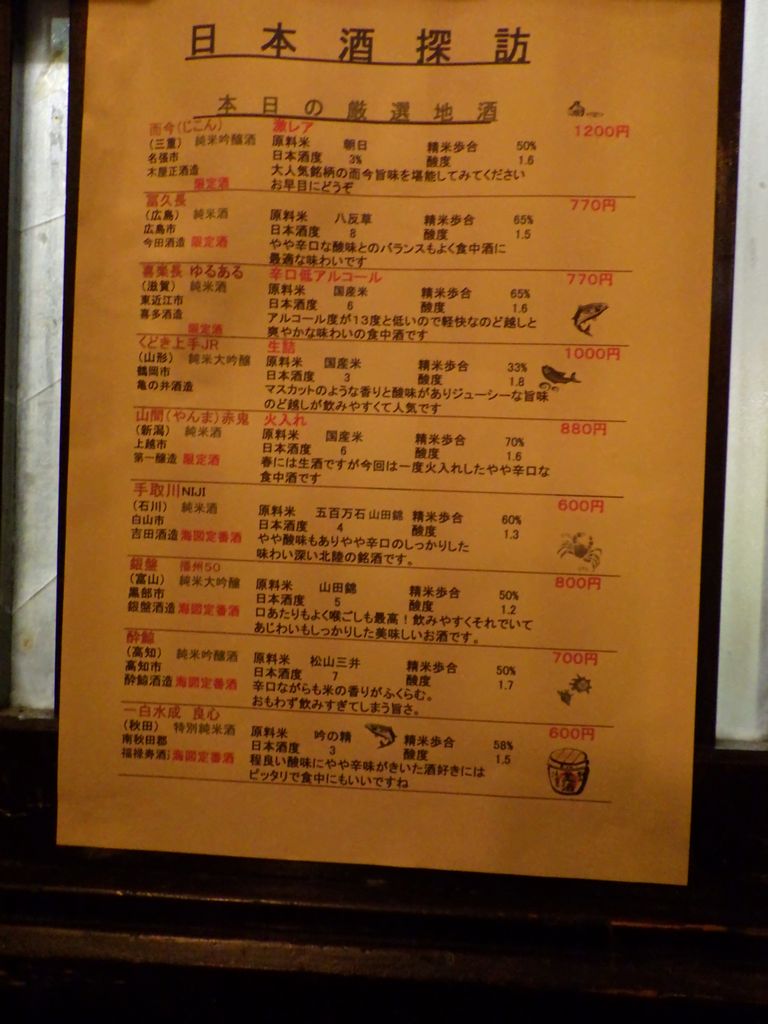 日本酒探訪
本日の厳選地酒
而今(じこん) 激レア 1200円
(三重) 純米吟醸酒 原料米 朝日 精米歩合 50%
名張市 日本酒度 3% 酸度 1.6
木屋正酒造 大人気銘柄の而今旨味を堪能してみてください
限定酒 お早目にどうぞ
富久長 770円
(広島) 純米酒 原料米 八反草 精米歩合 65%
広島市 日本酒度 8 酸度 1.5
今田酒造 限定酒 やや辛口な酸味とのバランスもよく食中酒に
最適な味わいです
喜楽長 ゆるある 辛口低アルコール 770円
(滋賀) 純米酒 原料米 国産米 精米歩合 65%
東近江市 日本酒度 6 酸度 1.6
喜多酒造 アルコール度が13度と低いので軽快なのど越しと
限定酒 爽やかな味わいの食中酒です
くどき上手JR 生詰 1000円
(山形) 純米大吟醸 原料米 国産米 精米歩合 33%
鶴岡市 日本酒度 3 酸度 1.8
亀の井酒造 マスカットのような香りと酸味がありジューシーな旨味
のど越しが飲みやすくて人気です
山間(やんま)赤鬼 火入れ 880円
(新潟) 純米酒 原料米 国産米 精米歩合 70%
上越市 日本酒度 6 酸度 1.6
第一醸造 限定酒 春には生酒ですが今回は一度火入れしたやや辛口な
食中酒です
手取川NIJI 600円
(石川) 純米酒 原料米 五百万石 山田錦 精米歩合 60%
白山市 日本酒度 4 酸度 1.3
吉田酒造 海図定番酒 やや酸味もありやや辛口のしっかりした
味わい深い北陸の銘酒です。
銀盤 播州50 800円
(富山) 純米大吟醸 原料米 山田錦 精米歩合 50%
黒部市 日本酒度 5 酸度 1.2
銀盤酒造 海図定番酒 口あたりもよく喉ごしも最高！飲みやすくそれでいて
あじわいもしっかりした美味しいお酒です。
酔鯨 700円
(高知) 純米吟醸酒 原料米 松山三井 精米歩合 50%
高知市 日本酒度 7 酸度 1.7
酔鯨酒造 海図定番酒 辛口ながらも米の香りがふくらむ。
おもわず飲みすぎてしまう旨さ。
一白水成 良心 600円
(秋田) 特別純米酒 原料米 吟の精 精米歩合 58%
南秋田郡 日本酒度 3 酸度 1.5
福禄寿酒 海図定番酒 程良い酸味にやや辛味がきいた酒好きには
ピッタリで食中にもいいですね